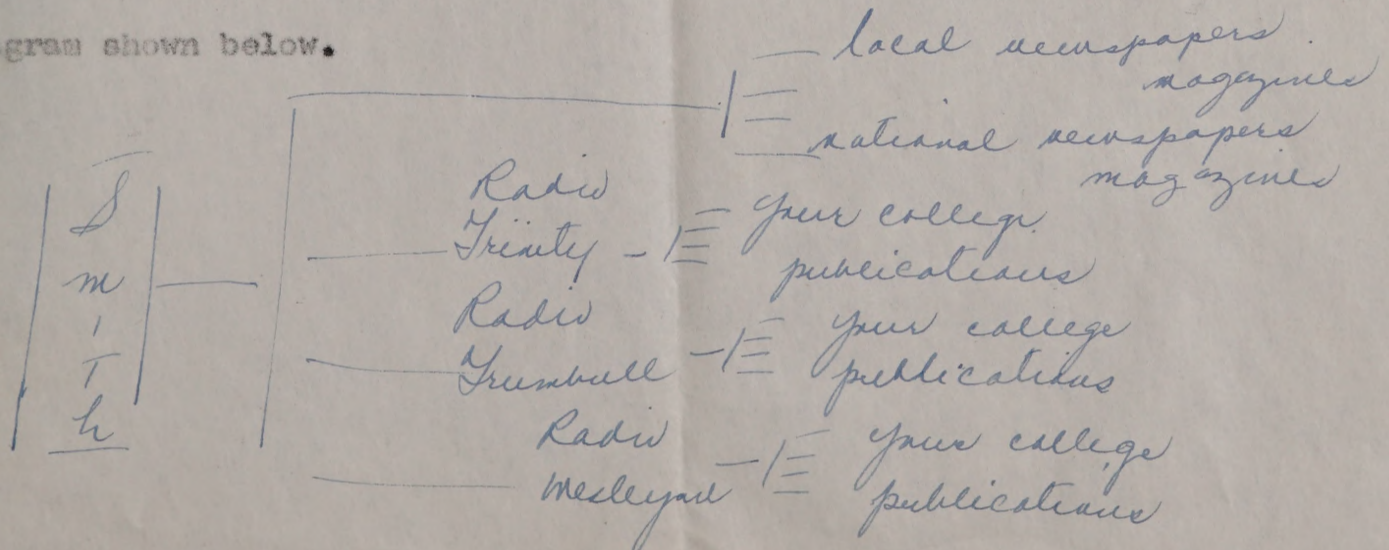 gram shown below.
local newspapers
magazines
national newspapers
magazines
Radio
Trinity
your college
publications
Smith
Radio
Trumbull
your college
publications
Radio
Wesleyan
your college
publications